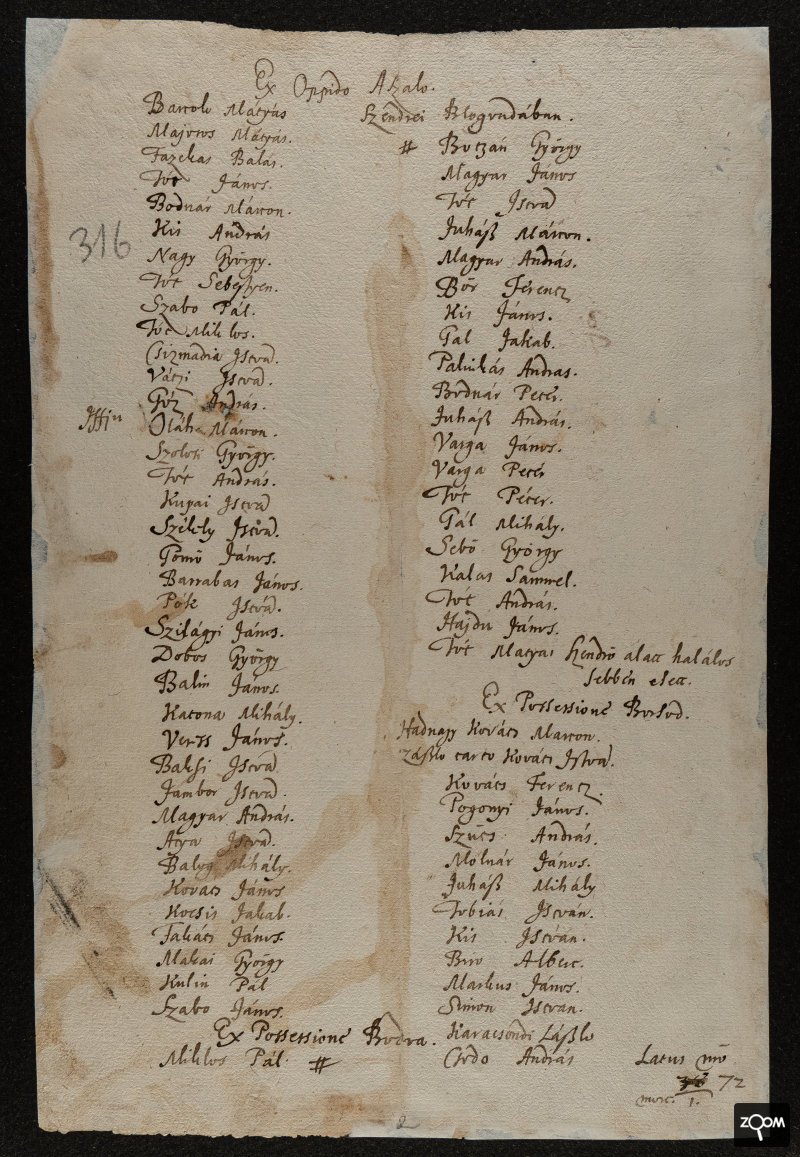 Ex Oppido Aszalo.
Bartok Mátyás
Majoros Mátyás.
Fazekas Balás.
Tót János.
Bodnár Márton.
Kis András
316
Nagy György.
Tót Sebestyen.
Szabo Pál.
Tót Miklos.
Csizmadia Istvá.
Váczi Istvá.
Góz András.
Iffju Oláh Márton.
György.
Tót András.
Kupai Istvá
Székely Istvá.
Gömö János.
Barrabas János.
Pók Istvá.
Szilágyi János.
Dobos György
Balin János.
Katona Mihály.
Veress János.
Baksi Istvá
Jámbor Istvá.
Magyar András.
Atya Istvá.
Balog Mihály.
Kovacs János
Kocsis Jakab.
Takács János.
Makai György
Kulin Pál
Szabo János.
Ex Possessione Bodva.
Miklos Pál. #
Szendrei
# Buczán György
Magyar János
Tót Istvá
Juhász Márton.
Magyar András.
Bör Ferencz
Kis János.
Gal Jakab.
Palinkás Andras.
Bodnár Peter.
Juhász András.
Varga János.
Varga Peter
Tót Péter.
Gál Mihály.
Sebö György
Kalas Samuel.
Tót András.
Hajdu János.
Tót Matyas Szendrö alatt halálos
sebben esett.
Ex Possessione Borsod.
Hadnagy Kovács Marton.
Zászlo tarto Kovács Istvá.
Kovács Ferencz.
Pogonyi János.
Szücs András.
Molnár János.
Juhász Mihály
Tobiás István.
Kis István.
Biro Albert.
Markus János.
Simon Istvan.
Karacsondi Lászlo
Csodo András
Latus
72
mort. 1.
2
ZOOM